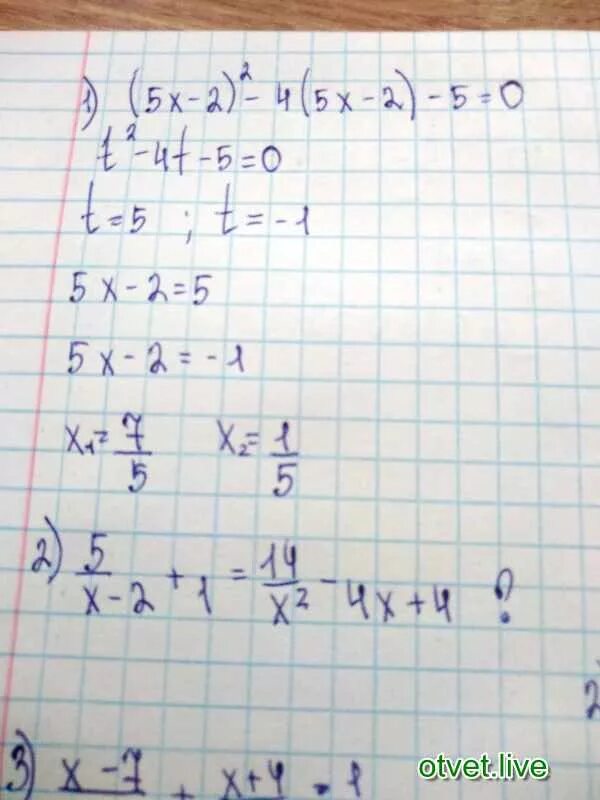 1) (5x-2)² - 4(5x-2) - 5 = 0
t² - 4t - 5 = 0
t = 5 ; t = -1
5x - 2 = 5
5x - 2 = -1
x₁ = 7/5 x₂ = 1/5
2) 5/(x-2) + 1 = 14/x² - 4x + 4 ?
2
3) x-7 + x+4 = 1
otvet.live